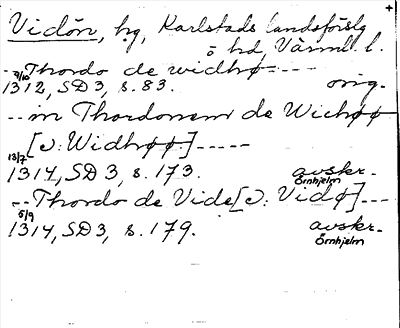 Vidön, hg, Karlstads landsförslg
ö hd, Värml. l.
-- Thordo de widhø ----
7/10
1312, SD 3, s. 83. orig.
-- m Thordonem de Wichøø
[ɔ: Widhøø] -----
13/7
1314, SD 3, s. 173. avskr.
Örnhjelm
-- Thordo de Vide [ɔ: Vidø] ---
5/9
1314, SD 3, s. 179. avskr.
Örnhjelm